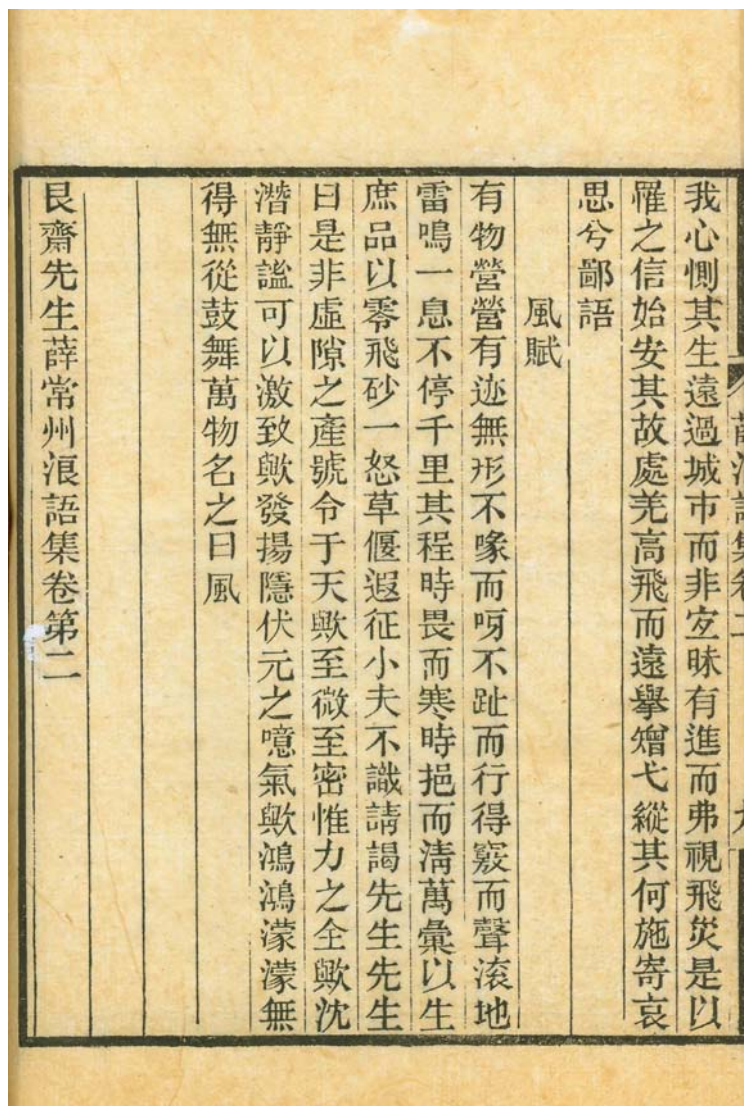 薛浪語集卷二 九
我心惻其生遠過城市而非宜昧有進而弗視飛災是以
罹之信始安其故處羌高飛而遠舉矰弋縱其何施寄哀
思兮鄙語
風賦
有物營營有迹無形不喙而呀不趾而行得竅而聲滚地
雷鳴一息不停千里其程時畏而寒時挹而淸萬彙以生
庶品以零飛砂一怒草偃遐征小夫不識請謁先生先生
曰是非虛隙之產號令于天歟至微至密惟力之全歟沈
潛靜謐可以激致歟發揚隱伏元之噫氣歟鴻鴻濛濛無
得無從鼓舞萬物名之曰風
艮齋先生薛常州浪語集卷第二